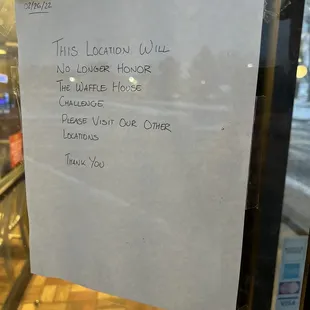 02/26/22
THIS LOCATION WILL
NO LONGER HONOR
THE WAFFLE HOUSE
CHALLENGE
PLEASE VISIT OUR OTHER
LOCATIONS
THANK YOU
VISA